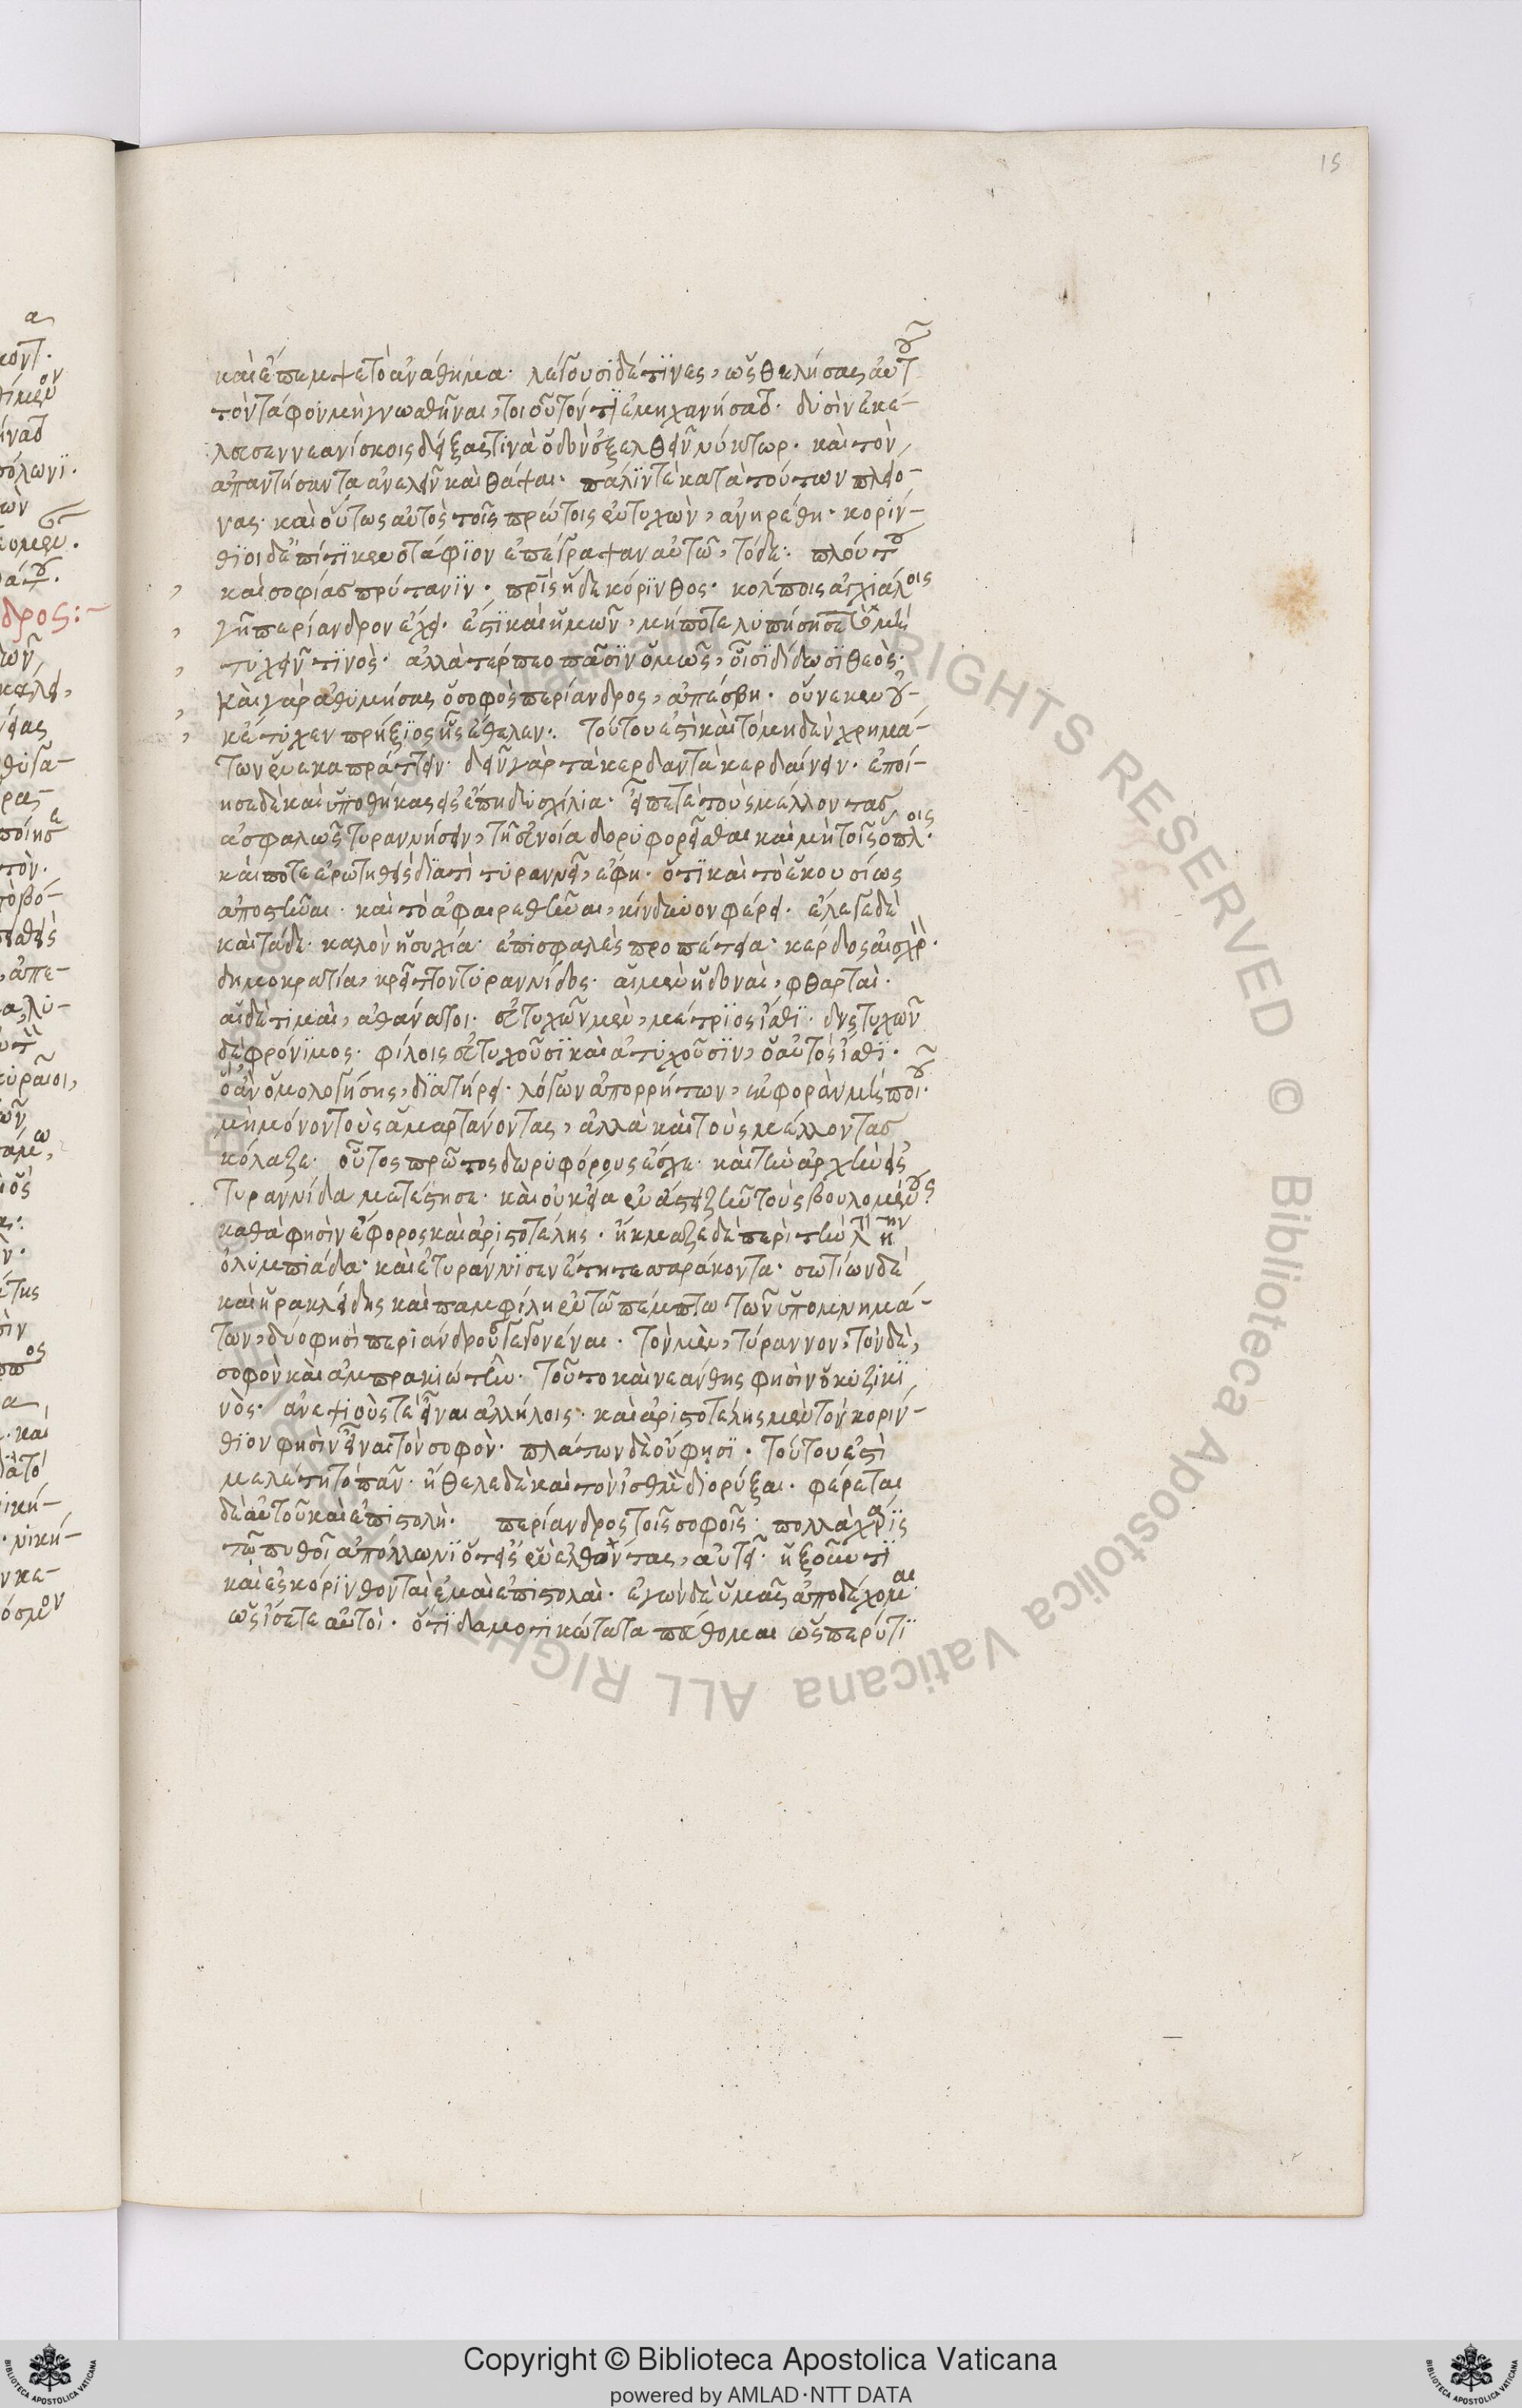 15
καὶ ἔπεμψε τὸ ἀνάθημα. λέγουσι δέ τινες, ὡς θελήσας αὐτοῦ
τὸν τάφον μὴ γνωσθῆναι, τοιοῦτόν τι ἐμηχανήσατο. δυσὶν ἐκέ-
λευσεν νεανίσκοις δείξας τινὰ ὁδὸν ἐξελθεῖν νύκτωρ. καὶ τὸν
ἀπαντήσαντα ἀνελεῖν καὶ θάψαι. πάλιν τε κατὰ τούτων πλείο-
νας. καὶ οὕτως αὐτὸς τοῖς πρώτοις ἐντυχὼν, ἀνηρέθη. κορίν-
θιοι δ' ἐπί τι κενοτάφιον ἐπέγραψαν αὐτῶ, τόδε: πλούτου
καὶ σοφίας πρύτανιν. πατρὶς ἥδε κόρινθος. κόλποις ἀγχιάλοις
γῆ περίανδρον ἔχει. ἔστι καὶ ἡμῶν, μήποτε λυπήσῃ σε τὸ μή
τυχεῖν τινὸς. ἀλλὰ τέρπεο πᾶσιν ὁμῶς, οἷσι δίδωσι θεὸς.
καὶ γὰρ ἀθυμήσας ὁ σοφὸς περίανδρος, ἀπέσβη. οὕνεκεν οὐ-
κ ἔτυχεν πρήξιος ἧς ἔθελεν: τούτου ἐστὶ καὶ τό μηδὲν χρημά-
των ἕνεκα πράττειν. δεῖν γὰρ τὰ κερδαντὰ κερδαίνειν. ἐποί-
ησε δὲ καὶ ὑποθήκας εἰς ἔπη δισχίλια. εἶπέ τε τοὺς μέλλοντας
ἀσφαλῶς τυραννήσειν, τῆ εὐνοία δορυφορεῖσθαι καὶ μὴ τοῖς ὅπλοις.
καί ποτε ἐρωτηθεὶς διατὶ τυραννεῖ, ἔφη. ὅτι καὶ τὸ ἑκουσίως
ἀποστῆναι. καὶ τὸ ἀφαιρεθῆναι, κίνδυνον φέρει. ἔλεγε δὲ
καὶ τάδε. καλὸν ἡσυχία. ἐπισφαλὲς προπέτεια. κέρδος αἰσχρὸν.
δημοκρατία, κρεῖττον τυραννίδος. αἱ μὲν ἡδοναὶ, φθαρταὶ.
αἱ δὲ τιμαὶ, ἀθάνατοι. εὐτυχῶν μὲν, μέτριος ἴσθι. δυστυχῶν
δὲ φρόνιμος. φίλοις εὐτυχοῦσι καὶ ἀτυχοῦσιν, ὁ αὐτὸς ἴσθι.
ὃ ἂν ὁμολογήσῃς, διατήρει. λόγων ἀπορρήτων, ἐκφορὰν μὴ ποιοῦ.
μὴ μόνον τοὺς ἁμαρτάνοντας, ἀλλὰ καὶ τοὺς μέλλοντας
κόλαζε. οὗτος πρῶτος δωρυφόρους ἔσχε. καὶ τὴν ἀρχὴν εἰς
τυραννίδα μετέστησε. καὶ οὐκ εἴα ἐν ἄστει ζῆν τοὺς βουλομένους
καθὰ φησὶν ἔφορος καὶ ἀριστοτέλης. ἤκμαζε δὲ περὶ τὴν λ η
ὀλυμπιάδα. καὶ ἐτυράννισεν ἔτη τεσσαράκοντα. σωτίων δὲ
καὶ ἡρακλείδης καὶ παμφίλη ἐν τῶ πέμπτω τῶν ὑπομνημά-
των, δύο φησὶ περιάνδρους γεγονέναι. τὸν μὲν, τύραννον, τὸν δὲ,
σοφὸν καὶ ἀμπρακιώτην. τοῦτο καὶ νεάνθης φησὶν ὁ κυζικη
νὸς. ἀνεψιούς τε εἶναι ἀλλήλοις. καὶ ἀριστοτέλης μὲν τὸν κορίν-
θιον φησὶν εἶναι τὸν σοφὸν. πλάτων δὲ οὔ φησι. τούτου ἐστὶ
μελέτη τὸ πᾶν. ἤθελε δὲ καὶ τὸν ἰσθμὸν διορύξαι. φέρεται
δὲ αὐτοῦ καὶ ἐπιστολὴ. περίανδρος τοῖς σοφοῖς. πολλὰ χάρις
τῶ πυθοῖ ἀπόλλωνι ὅτι εἰς ἓν ἐλθόντας, αὐτεῖ. ἡξοῦντι
καὶ ἐς κόρινθον ταὶ ἐμαὶ ἐπιστολαὶ. ἐγὼν δὲ ὑμᾶς ἀποδέχομαι
ὡς ἴστε αὐτοὶ. ὅτι δαμοτικώτατα πείθομαι ὡς πέρυτι
Copyright © Biblioteca Apostolica Vaticana
powered by AMLAD·NTT DATA